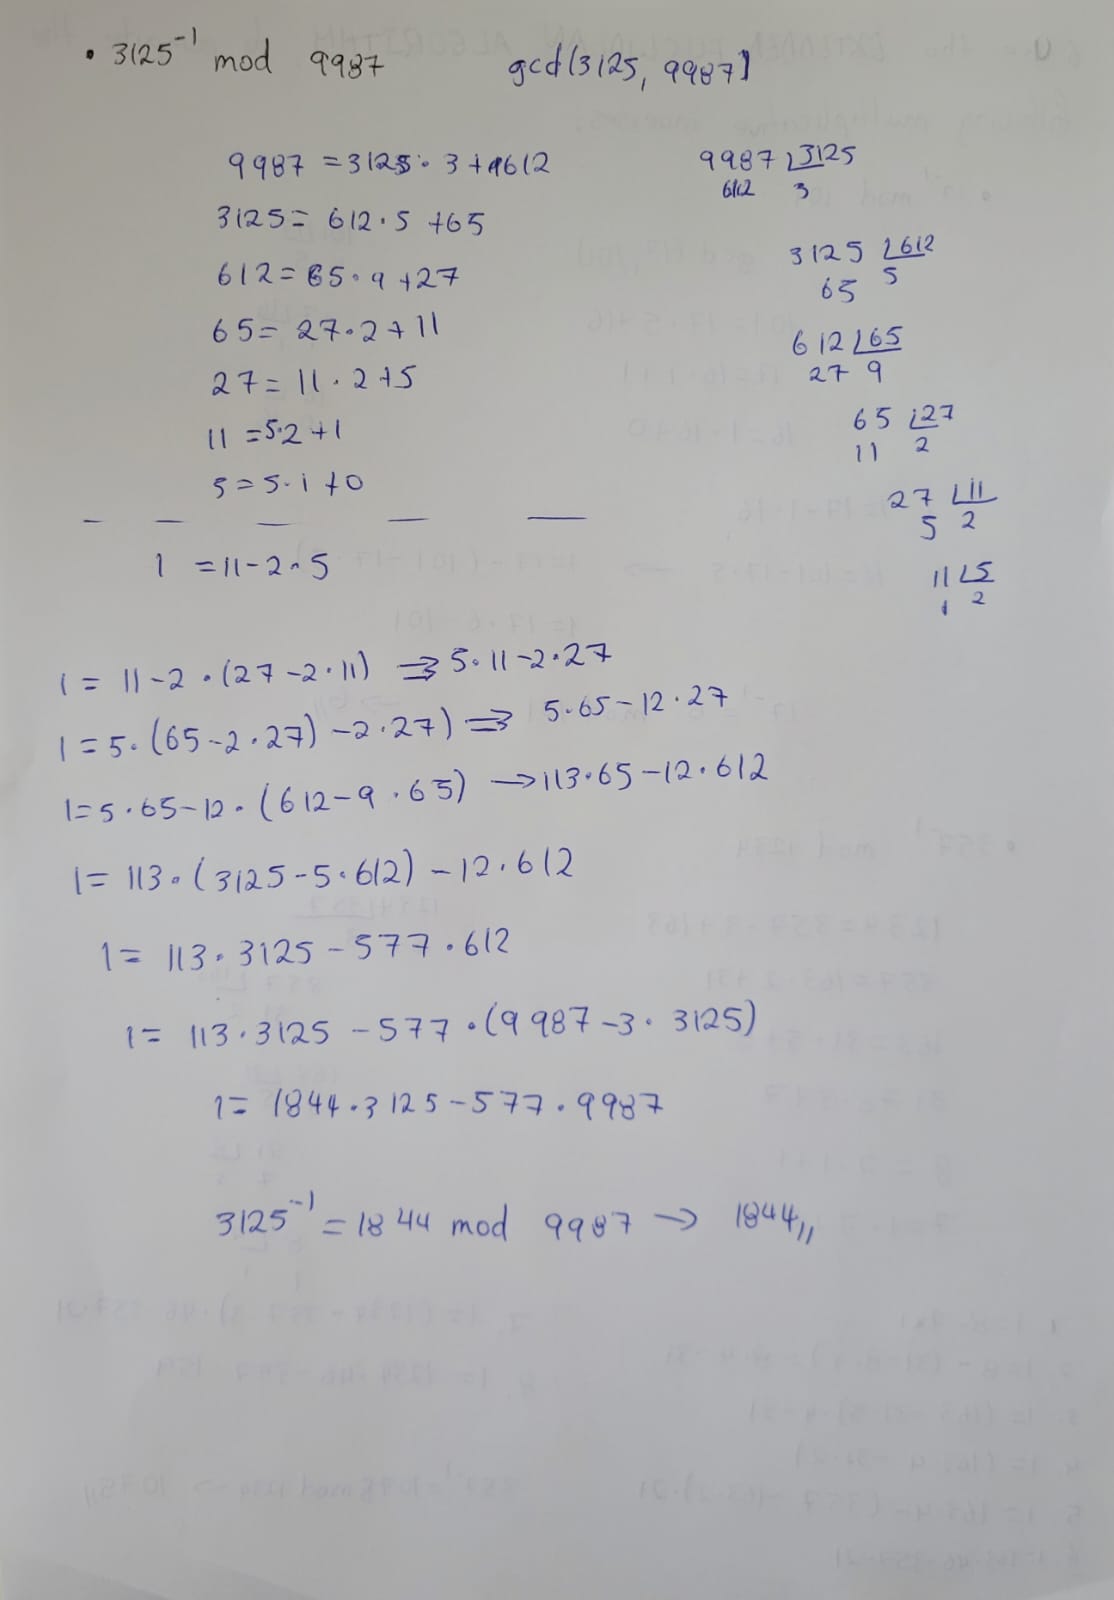 • 3125⁻¹ mod 9987 gcd(3125, 9987)
9987 = 3125 · 3 + 612
3125 = 612 · 5 + 65
612 = 65 · 9 + 27
65 = 27 · 2 + 11
27 = 11 · 2 + 5
11 = 5 · 2 + 1
5 = 5 · 1 + 0
9987 | 3125
612 3
3125 | 612
65 5
612 | 65
27 9
65 | 27
11 2
27 | 11
5 2
11 | 5
1 2
1 = 11 - 2 · 5
1 = 11 - 2 · (27 - 2 · 11) ⇒ 5 · 11 - 2 · 27
1 = 5 · (65 - 2 · 27) - 2 · 27) ⇒ 5 · 65 - 12 · 27
1 = 5 · 65 - 12 · (612 - 9 · 65) → 113 · 65 - 12 · 612
1 = 113 · (3125 - 5 · 612) - 12 · 612
1 = 113 · 3125 - 577 · 612
1 = 113 · 3125 - 577 · (9987 - 3 · 3125)
1 = 1844 · 3125 - 577 · 9987
3125⁻¹ = 1844 mod 9987 → 1844,,